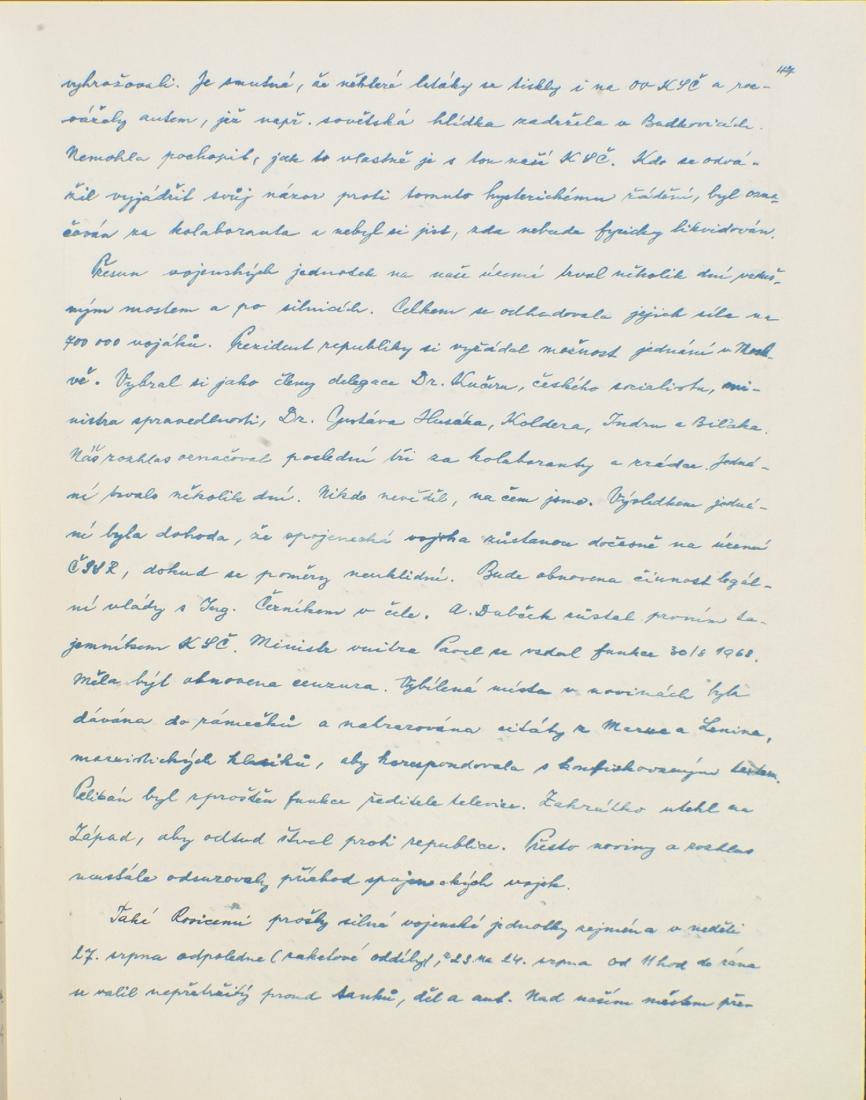 47
vyhrožovali. Je smutné, že některé letáky se tiskly i na OV KSČ a roz-
vážely autem, jež např. sovětská hlídka zadržela v Budkovicích.
Nemohla pochopit, jak to vlastně je s tou naší KSČ. Kdo se odvá-
žil vyjádřit svůj názor proti tomuto hysterickému řádění, byl ozna-
čován za kolaboranta a nebyl si jist, zda nebude fyzicky likvidován.
Přesun vojenských jednotek na naše území trval několik dní vzduš-
ným mostem a po silnicích. Celkem se odhadovala jejich síla na
700 000 vojáků. Prezident republiky si vyžádal možnost jednání v Mosk-
vě. Vybral si jako členy delegace Dr. Kučeru, českého socialistu, mi-
nistra spravedlnosti, Dr. Gustáva Husáka, Koldera, Indru a Biľaka.
Náš rozhlas označoval poslední tři za kolaboranty a zrádce. Jedná-
ní trvalo několik dní. Nikdo nevěděl, na čem jsme. Výsledkem jedná-
ní byla dohoda, že spojenecká vojska zůstanou dočasně na území
ČSSR, dokud se poměry neuklidní. Bude obnovena činnost legál-
ní vlády s Ing. Černíkem v čele. A. Dubček zůstal prvním ta-
jemníkem KSČ. Ministr vnitra Pavel se vzdal funkce 30/8 1968.
Měla být obnovena cenzura. Vybílená místa v novinách byla
dávána do rámečků a nahrazována citáty z Marxe a Lenina,
marxistických klasiků, aby korespondovala s konfiskovaným textem.
Pelikán byl zproštěn funkce ředitele televize. Zahrádko utekl na
Západ, aby odtud štval proti republice. Přesto noviny a rozhlas
neustále odsuzovaly příchod spojeneckých vojsk.
Také Rosicemi prošly silné vojenské jednotky zejména v neděli
27. srpna odpoledne (raketové oddíly), z 23 na 24. srpna od 11 hod do rána
se valil nepřetržitý proud tanků, děl a aut. Nad naším městem pře-